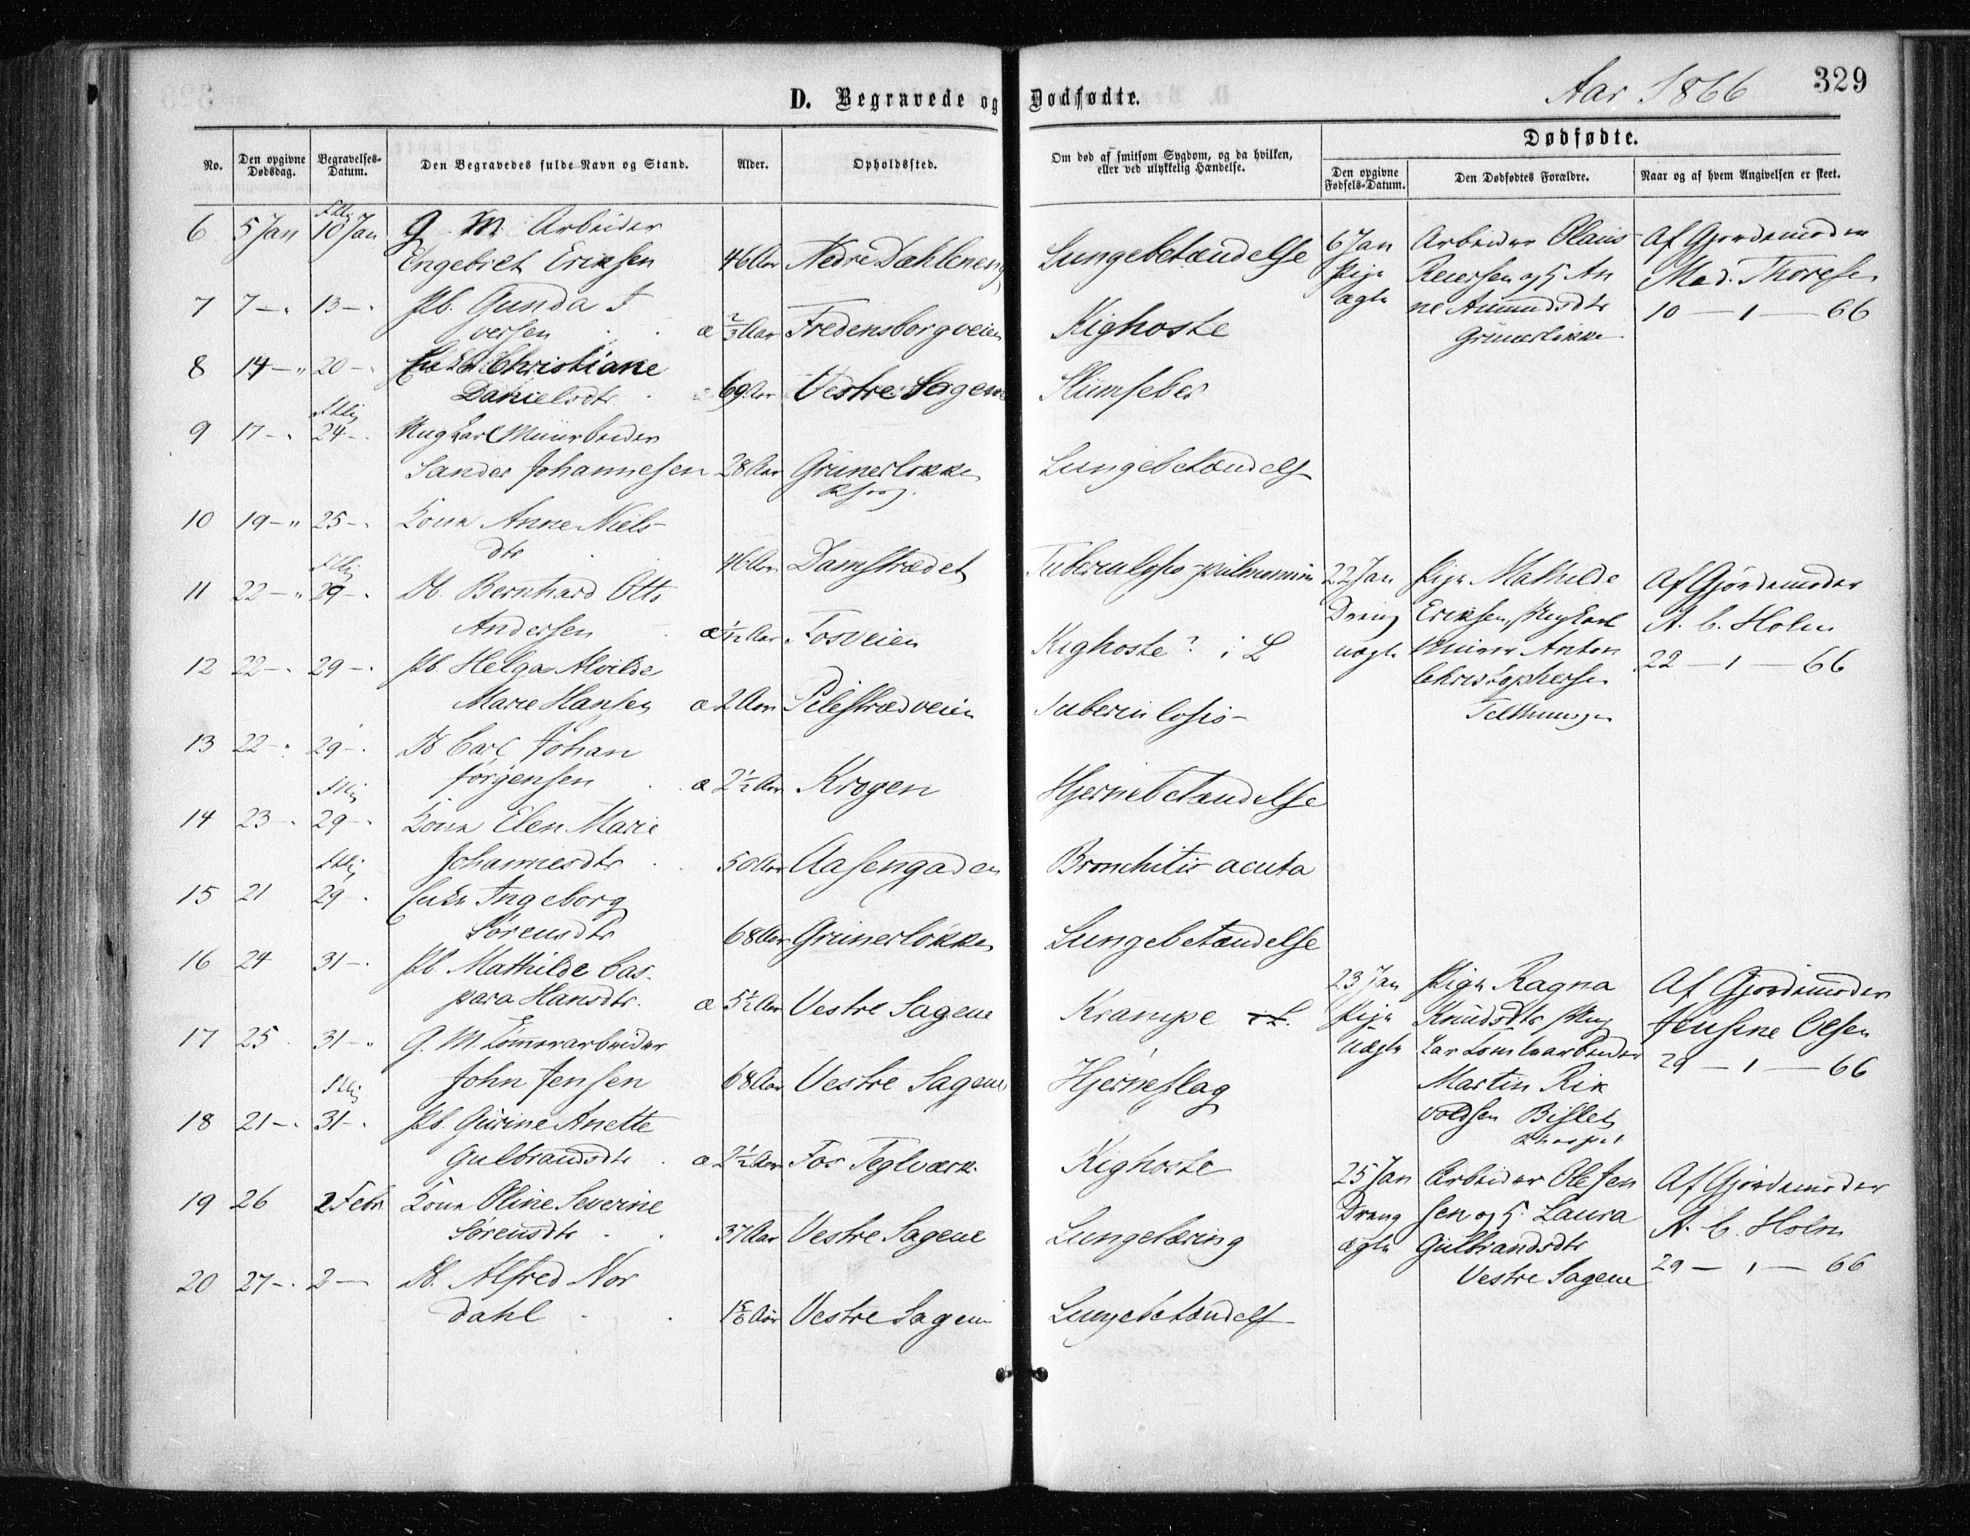 D. Begravede og Dødfødte.
Aar 1866
329
No.
Den opgivne Dødsdag.
Begravelses-Datum.
Den Begravedes fulde Navn og Stand.
Alder.
Opholdssted.
Om død af smitsom Sygdom, og da hvilken,
eller ved ulykkelig Hændelse.
Dødfødte.
Den opgivne Fødsels-Datum.
Den Dødfødtes Forældre.
Naar og af hvem Angivelsen er skeet.
6 5 Jan 10 Jan G. M. Arbeider
Engebret Eriksen 46 Aar Nedre Dahleneng Lungebetændelse
7 7 — " 13 — Pb. Gunda I
versen æ 2/3 Aar Fredensborgveien Kighoste
8 14 — " 20 — Enke Christiane
Danielsdtr 69 Aar Vestre Sagene Slimfeber
9 17 — " 24 — Ungkarl Muurarbeider
Sander Johannesen 28 Aar Grünerløkken Lungebetændelse
10 19 — " 25 — Kone Anne Niels
dtr 46 Aar Damstrædet Tuberculosis pulmonum
11 22 — " 29 — Db. Bernhard Otto
Andersen æ 1/12 Aar Fosveien Kighoste ? i L
12 22 — 29 — Pb. Helga Alvilde
Marie Hansen æ 2 Aar Pilestrædveien Tuberculosis
13 22 — " 29 — Db Carl Johan
Jørgensen æ 2 1/2 Aar Krogen Hjernebetændelse
14 23 — 29 — Kone Elen Marie
Johannesdtr 50 Aar Aasengaden Bronchitis acuta
15 21 29 Enke Ingeborg
Sørensdtr 68 Aar Grünerløkken Lungebetændelse
16 24 31 — Pb. Mathilde Cas
para Hansdtr. æ 5 1/2 Aar Vestre Sagene Krampe
17 25 31 — " G. M. Tømmerarbeider
John Jensen 68 Aar Vestre Sagene Hjerneslag
18 21 — 31 — Pb. Gurine Anette
Gulbrandsdtr æ 2 1/2 Aar Fos Teglværk Kighoste
19 26 2 Febr Kone Oline Severine
Sørensdtr 37 Aar Vestre Sagene Lungetæring
20 27 — 2 — Db. Alfred Nor
dahl Vestre Sagene Lungebetændelse
6 Jan Arbeider Olaus Af Gjordemoder
Pige Reiersen og H. An Mad. Thoresen
ægte ne Amundsdtr 10 — 1 — 66
Grünerløkken
22 Jan Pige Mathilde Af Gjordemoder
Dreng Eriksen, Ungkarl A. C. Holm
uægte Murer Anton 22 — 1 — 66
Christophersen
23 Jan Pige Ragna Af Gjordemoder
Pige Knudsdtr Ung Jensine Olsen
uægte kar Tomtearbeider 29 — 1 — 66
Martin Rik
voldsen Bislet
25 Jan Arbeider Ole Jen Af Gjordemoder
Dreng sen og H. Laura A. C. Holm
ægte Gulbrandsdtr 29 — 1 — 66
Vestre Sagene